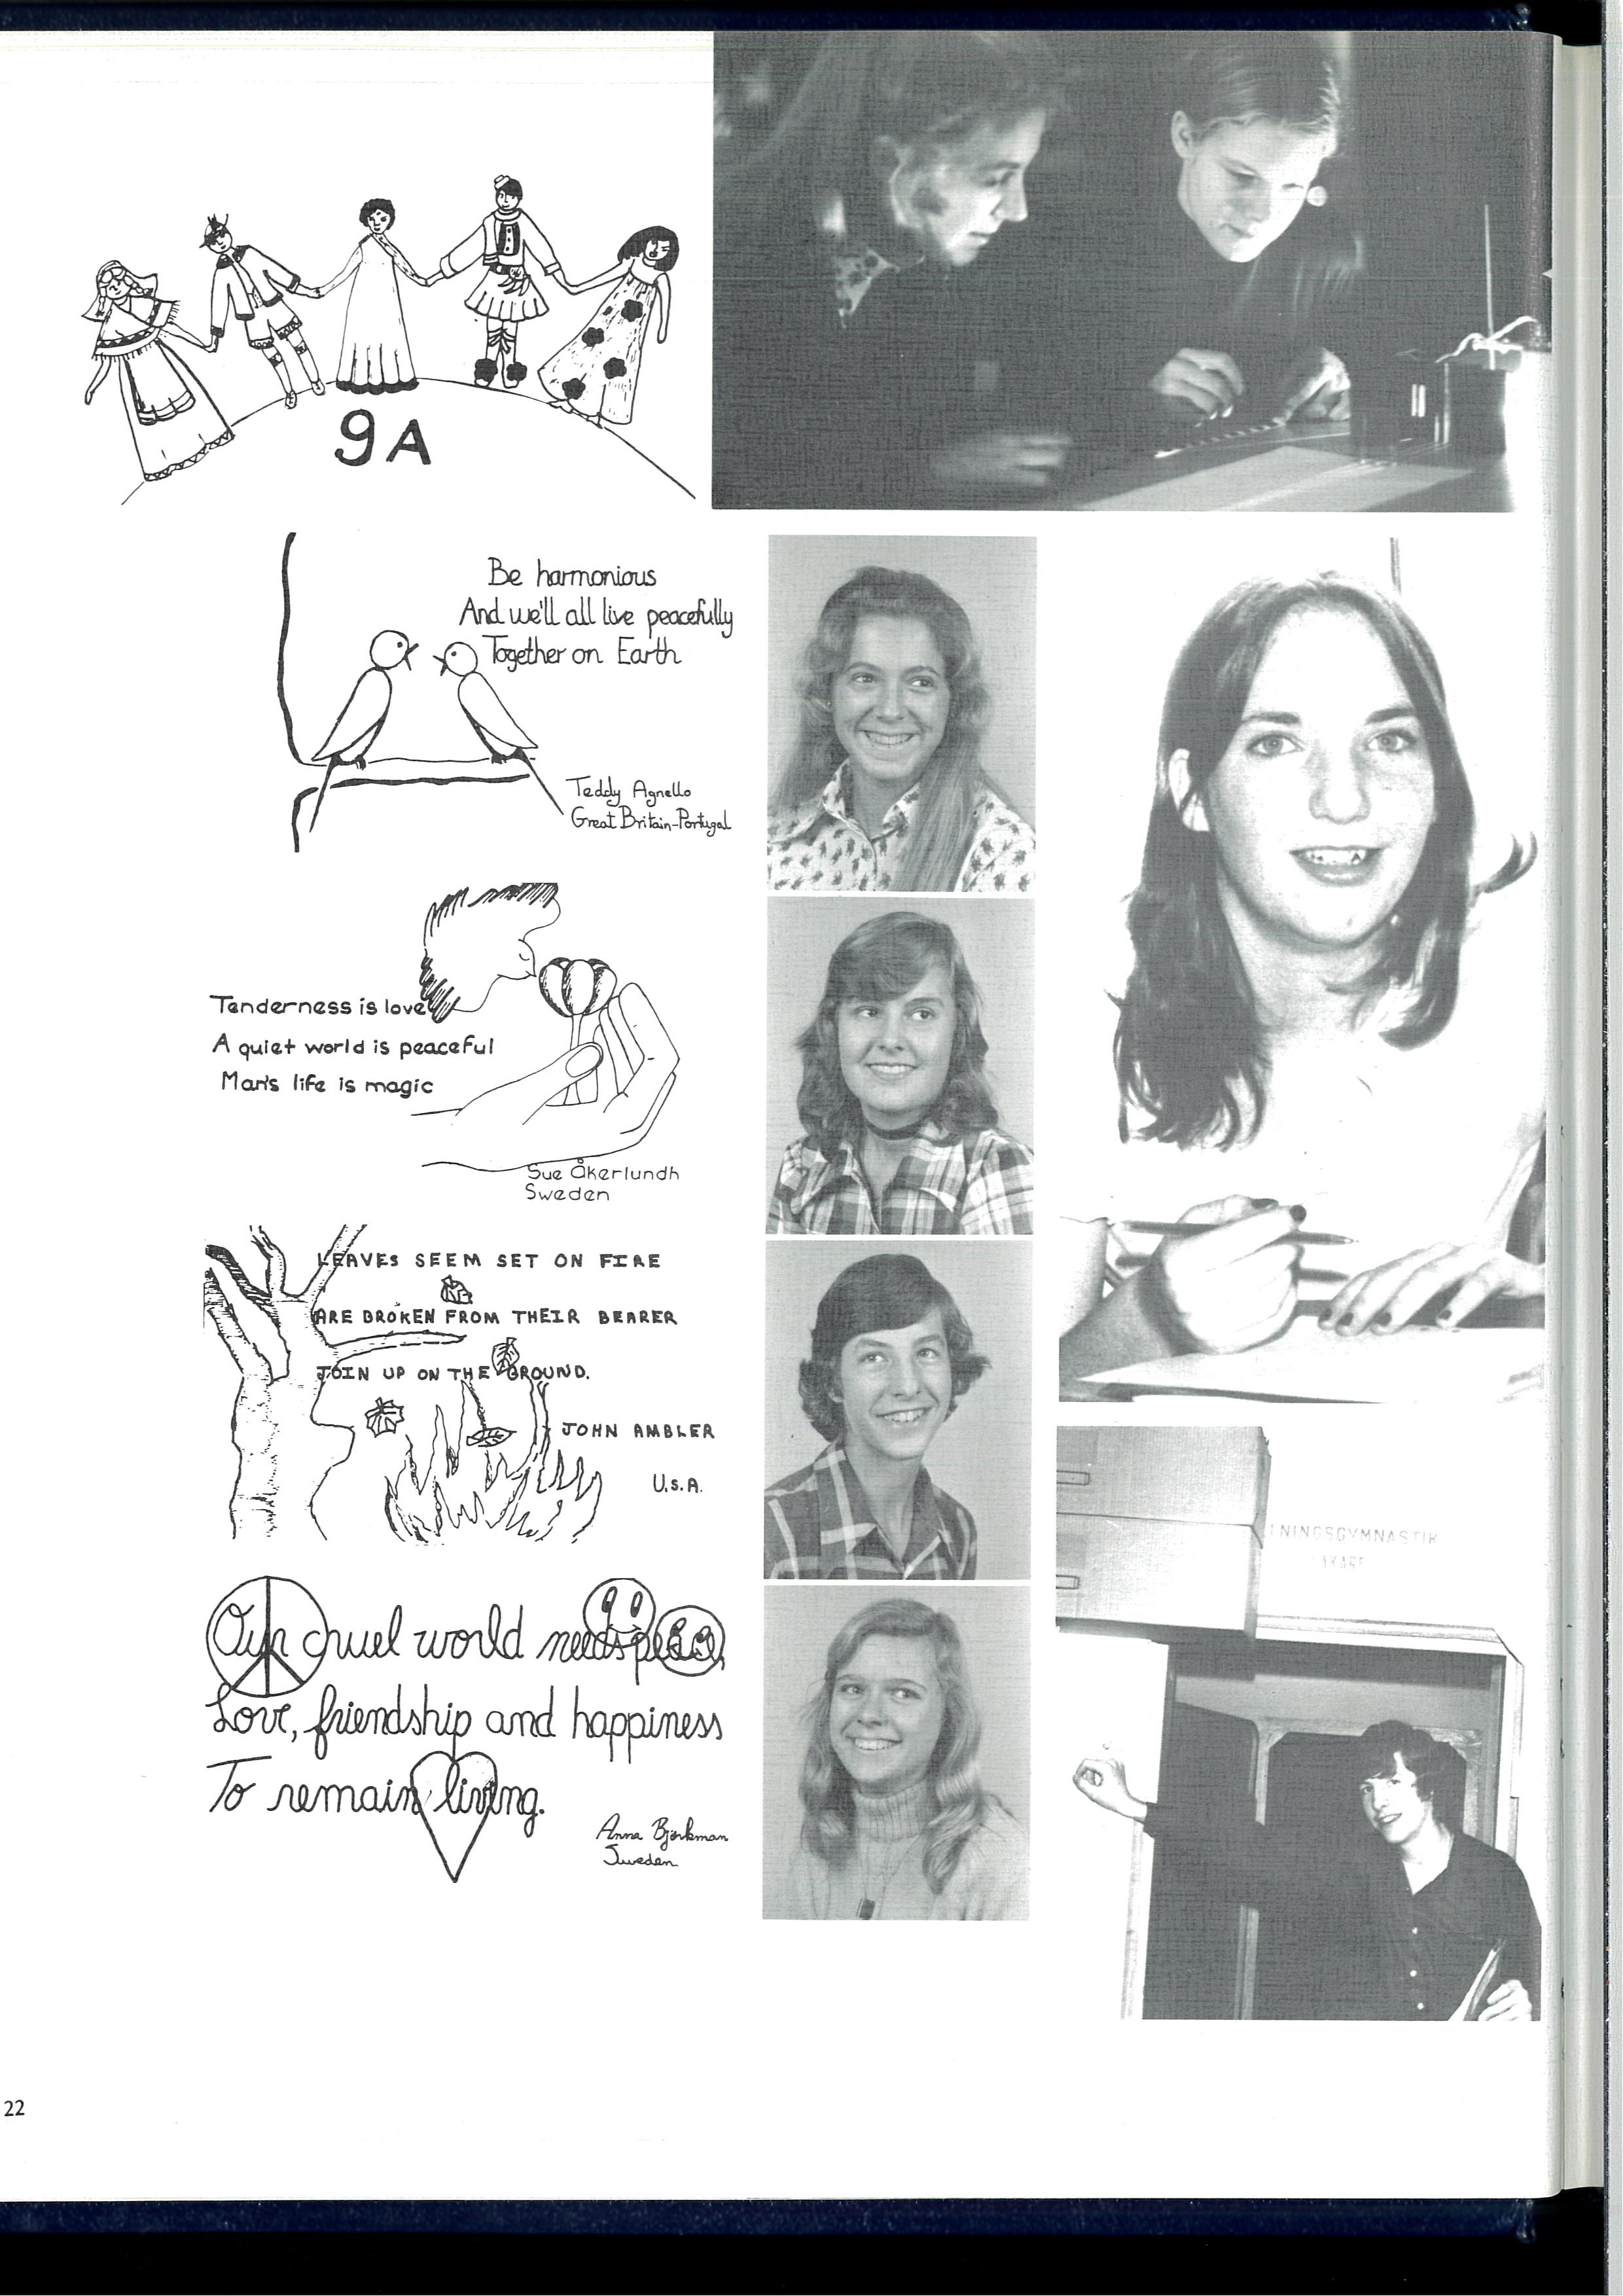 9A
Be harmonious
And we'll all live peacefully
Together on Earth
Teddy Agnello
Great Britain-Portugal
Tenderness is love
A quiet world is peaceful
Man's life is magic
Sue Åkerlundh
Sweden
LEAVES SEEM SET ON FIRE
ARE BROKEN FROM THEIR BEARER
JOIN UP ON THE GROUND.
JOHN AMBLER
U.S.A.
Our cruel world needs peace,
Love, friendship and happiness
To remain living.
Anna Björkman
Sweden
NINGSGYMNASTIK
22